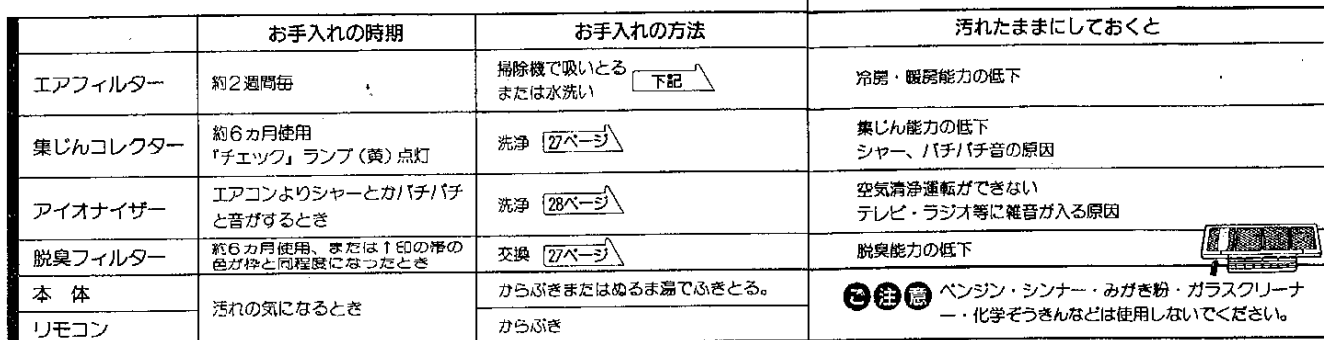 お手入れの時期 お手入れの方法 汚れたままにしておくと
エアフィルター 約2週間毎 掃除機で吸いとる
または水洗い 下記 冷房・暖房能力の低下
集じんコレクター 約6ヵ月使用
「チェック」ランプ(黄)点灯 洗浄 27ページ 集じん能力の低下
シャー、パチパチ音の原因
アイオナイザー エアコンよりシャーとかパチパチ
と音がするとき 洗浄 28ページ 空気清浄運転ができない
テレビ・ラジオ等に雑音が入る原因
脱臭フィルター 約6ヵ月使用、または↑印の帯の
色が枠と同程度になったとき 交換 27ページ 脱臭能力の低下
本 体 汚れの気になるとき からぶきまたはぬるま湯でふきとる。
リモコン からぶき
ご注意 ベンジン・シンナー・みがき粉・ガラスクリーナ
ー・化学ぞうきんなどは使用しないでください。